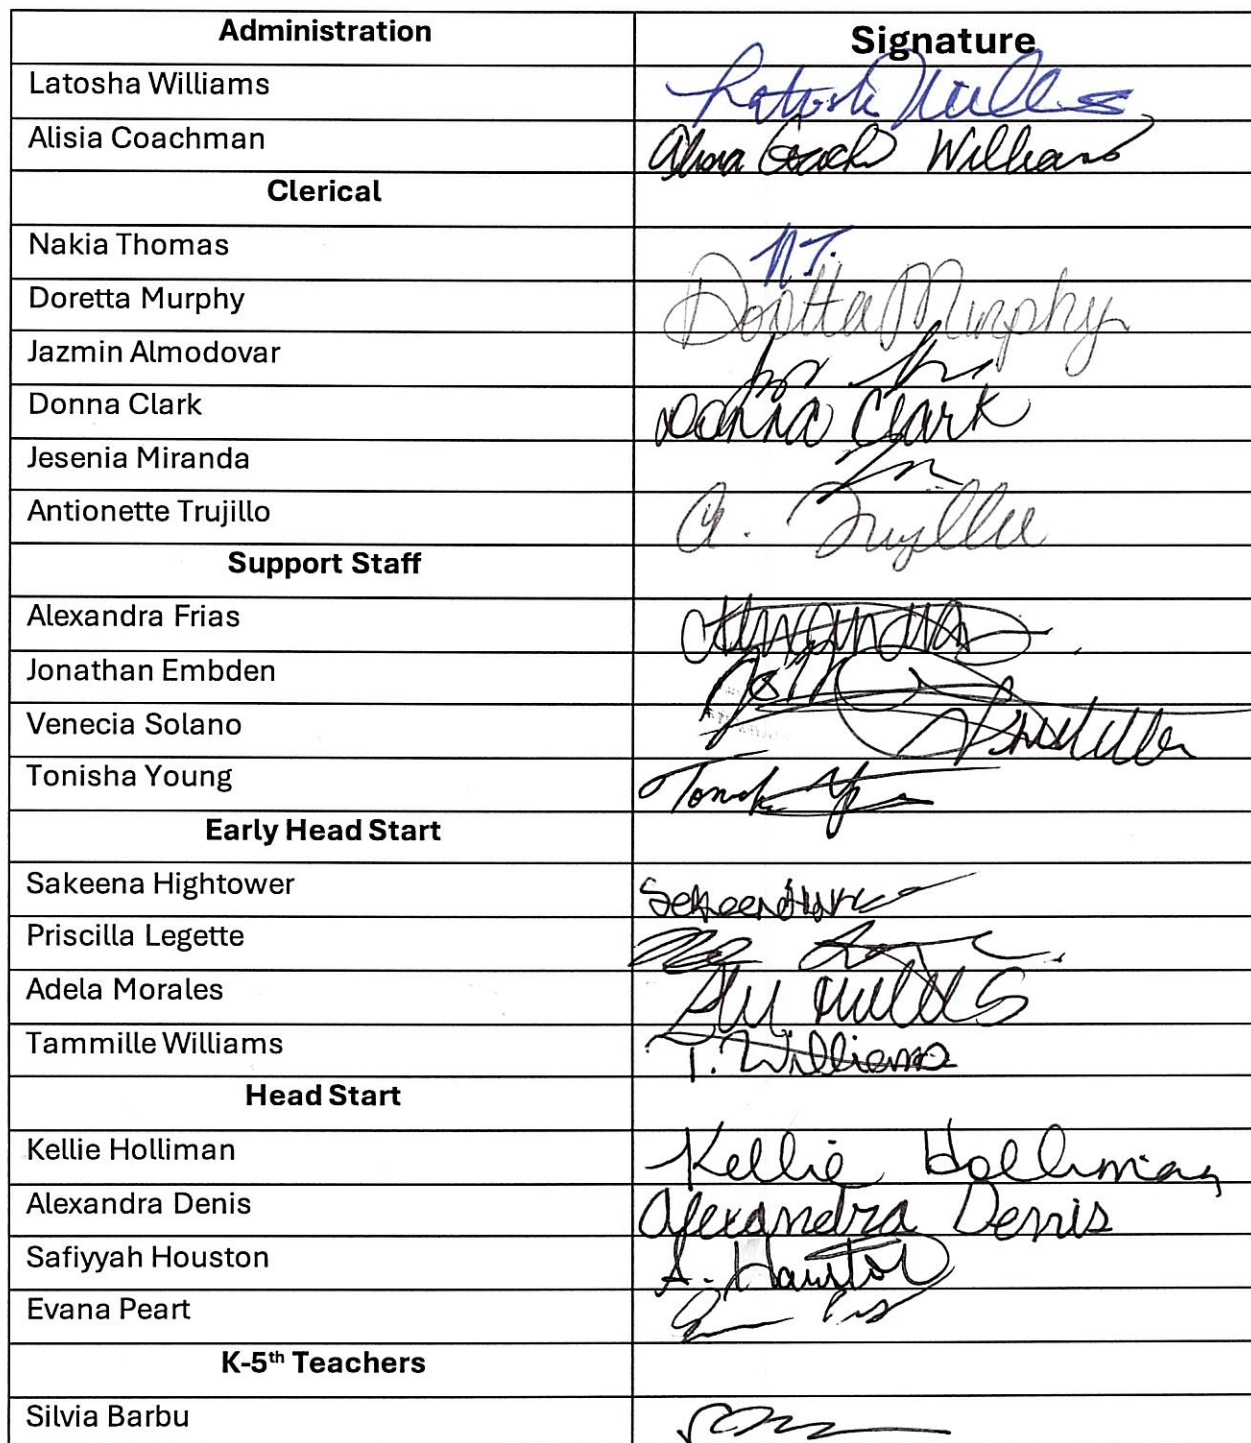 Administration Signature
Latosha Williams
Alisia Coachman Williams
Clerical
Nakia Thomas N.T.
Doretta Murphy Doretta Murphy
Jazmin Almodovar
Donna Clark Donna Clark
Jesenia Miranda
Antionette Trujillo A. Trujillo
Support Staff
Alexandra Frias
Jonathan Embden
Venecia Solano
Tonisha Young
Early Head Start
Sakeena Hightower
Priscilla Legette
Adela Morales
Tammille Williams T. Williams
Head Start
Kellie Holliman Kellie Holliman
Alexandra Denis Alexandra Denis
Safiyyah Houston S. Houston
Evana Peart
K-5th Teachers
Silvia Barbu